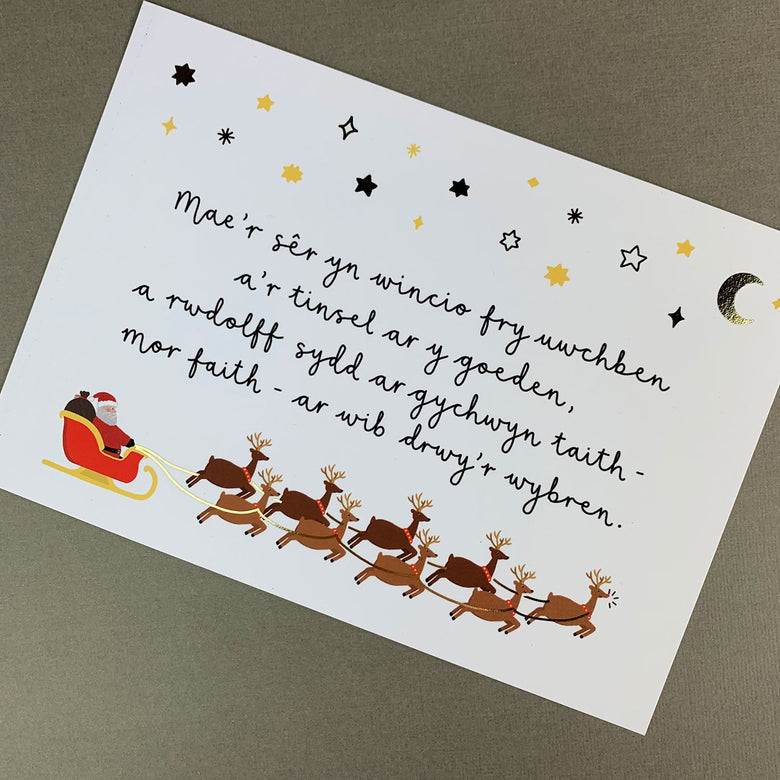 Mae'r sêr yn wincio fry uwchben
a'r tinsel ar y goeden,
a rwdolff sydd ar gychwyn taith -
mor faith - ar wib drwy'r wybren.